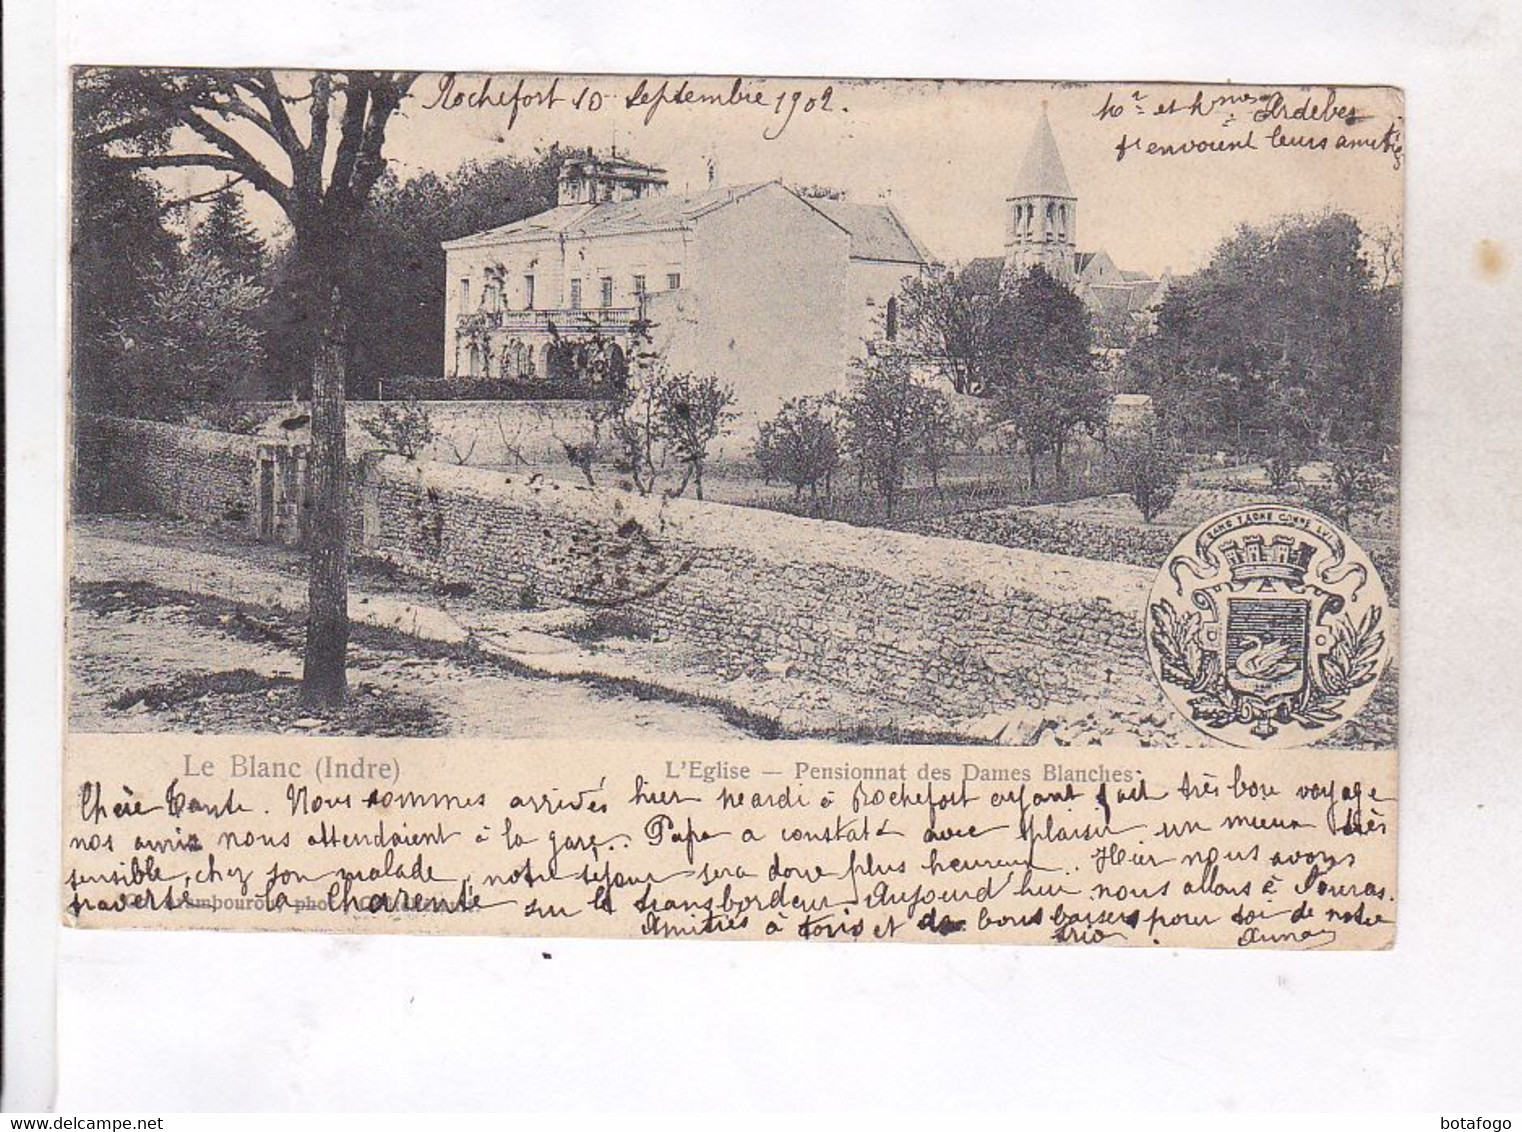 Rochefort 10 Septembre 1902.
Mr et Mmes Ardeber
t'envoient leurs amitiés
SANS TACHE COMME LUI
Le Blanc (Indre)
L'Eglise — Pensionnat des Dames Blanches
Chère Tante. Nous sommes arrivés hier mardi à Rochefort ayant fait très bon voyage
nos amis nous attendaient à la gare. Papa a constaté avec plaisir un mieux très
sensible, chez son malade, notre séjour sera donc plus heureux. Hier nous avons
traversé la Charente sur le transbordeur Aujourd'hui nous allons à Fouras.
phot.
Amitiés à tous et de bons baisers pour toi de notre
trio
botafogo